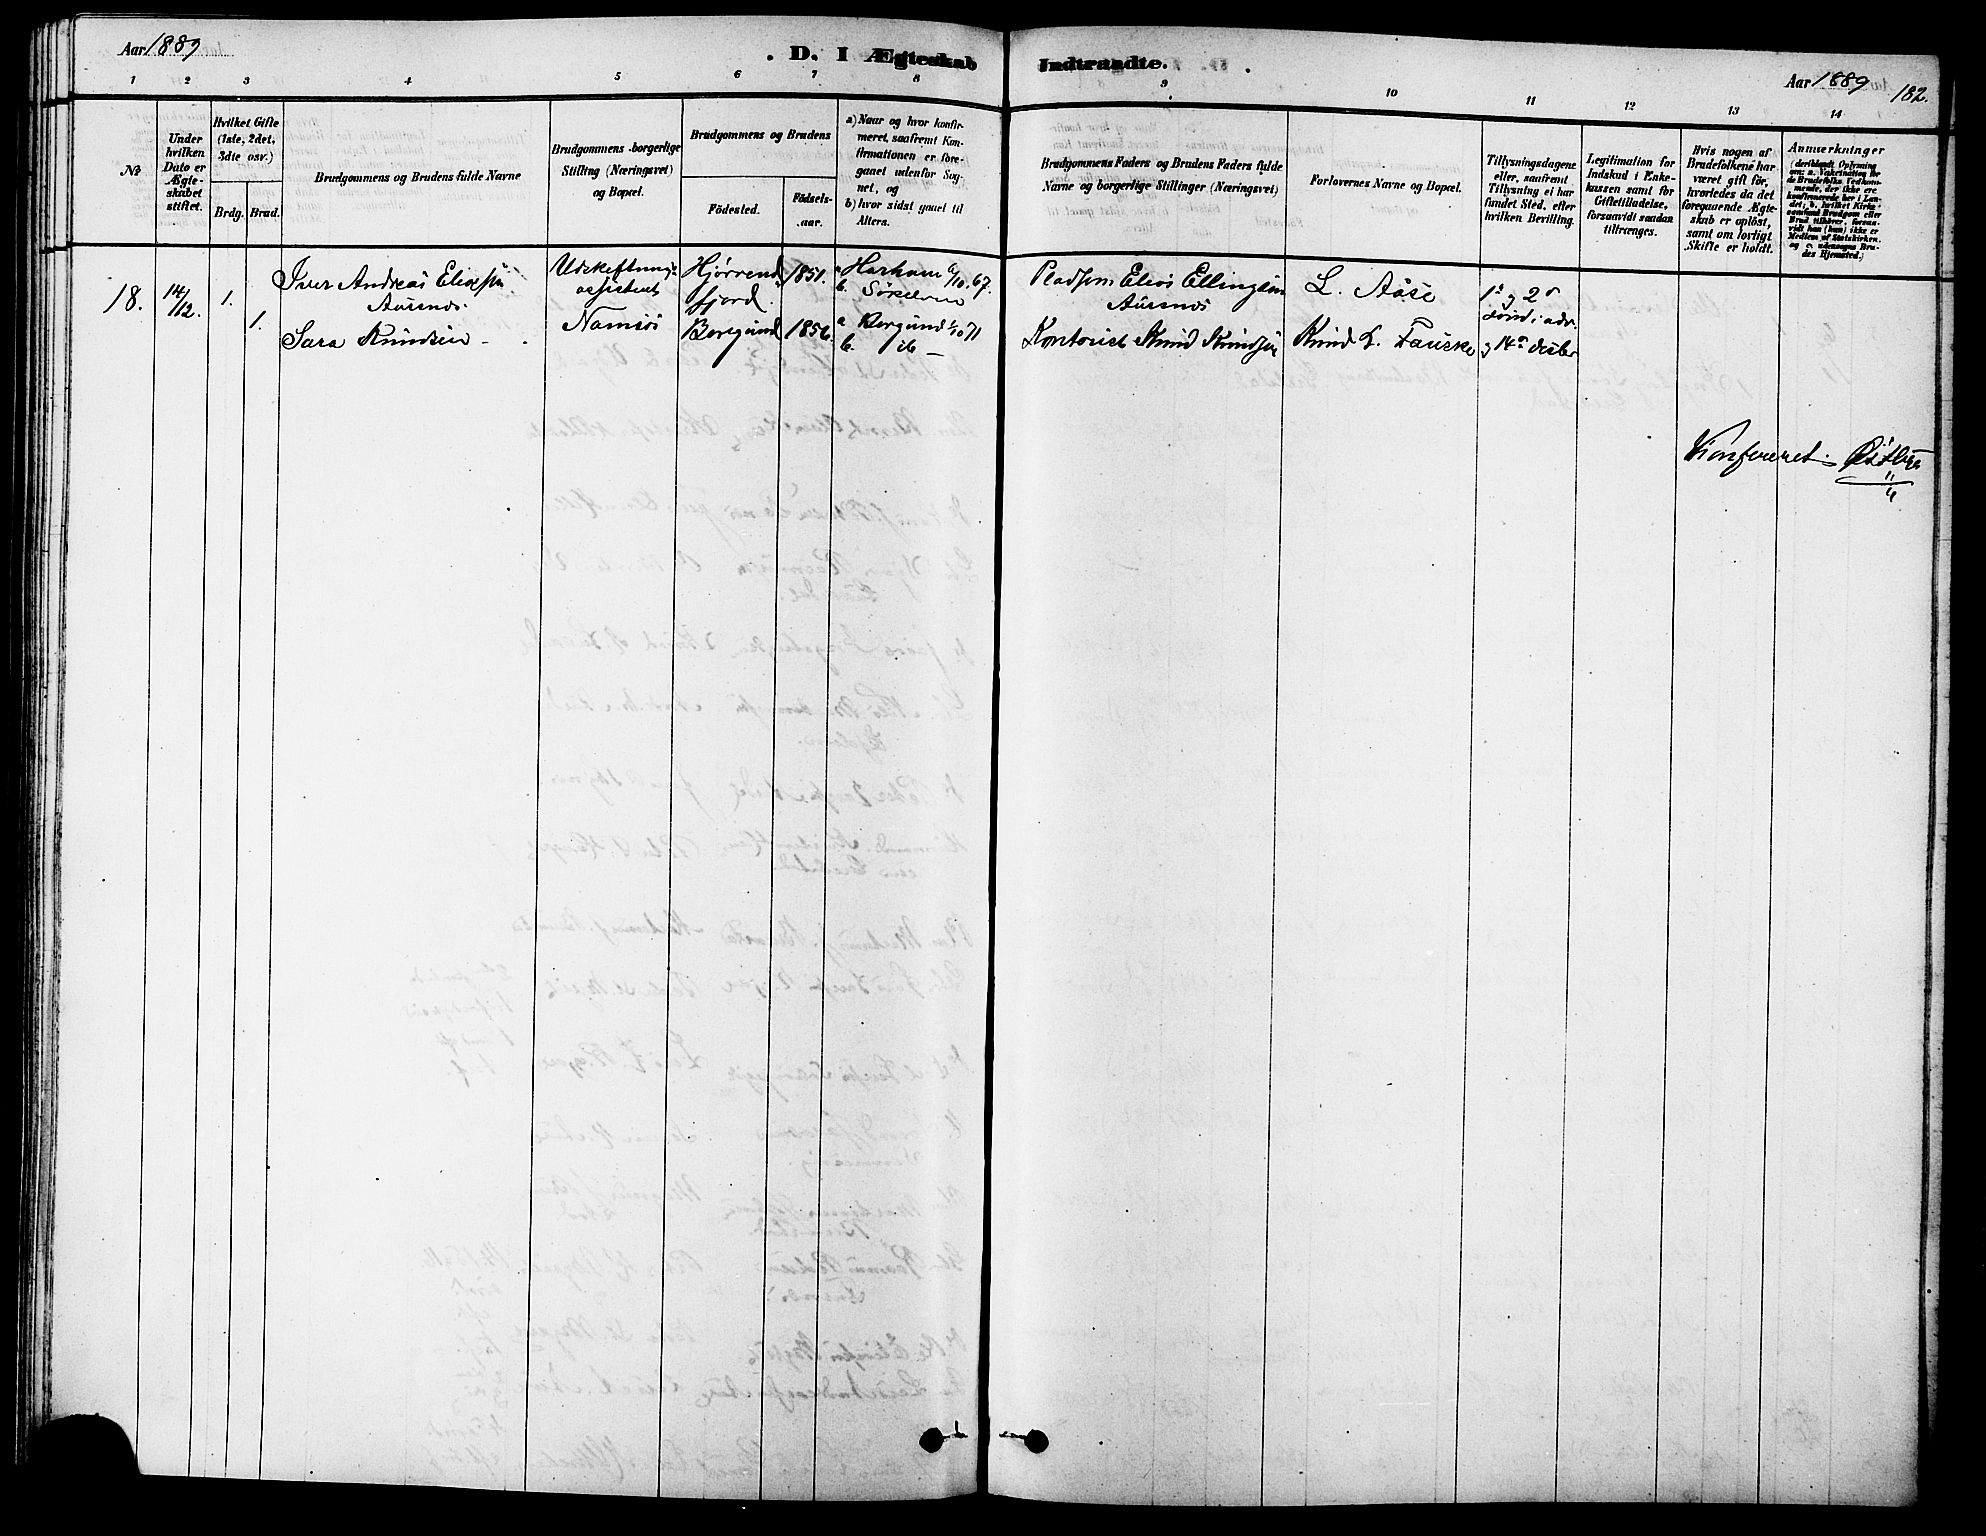 Aar 1889
D. I Ægteskab Indtraadte.
Aar 1889
182.
1 2 3 4 5 6 7 8 9 10 11 12 13 14
№
Under
hvilken
Dato er
Ægte-
skabet
stiftet.
Hvilket Gifte
(1ste, 2det,
3die osv.)
Brdg. Brud.
Brudgommens og Brudens fulde Navne
Brudgommens borgerlige
Stilling (Næringsvei)
og Bopæl.
Brudgommens og Brudens
Födested.
Födsels-
aar.
a) Naar og hvor konfir-
meret, saafremt Kon-
firmationen er fore-
gaaet udenfor Sog-
net, og
b) hvor sidst gaaet til
Alters.
Brudgommens Faders og Brudens Faders fulde
Navne og borgerlige Stillinger (Næringsvei)
Forlovernes Navne og Bopæl.
Tillysningsdagene
eller, saafremt
Tillysning ei har
fundet Sted, efter
hvilken Bevilling.
Legitimation for
Indskud i Enke-
kassen samt for
Giftetilladelse,
forsaavidt saadan
tiltrænges.
Hvis nogen af
Brudefolkene har
været gift før,
hvorledes da det
foregaaende Ægte-
skab er opløst,
samt om lovligt
Skifte er holdt.
Anmærkninger
(deriblandt Oplysning
om: a. Vakcination for
de Brudefolks Vedkom-
mende, der ikke ere
konfirmerede her i Lan-
det; b. hvilket Kirke-
samfund Brudgom eller
Brud tilhører, forsaa-
vidt han (hun) ikke er
Medlem af Statskirken,
og c. udensogns Bru-
des Hjemsted.)
18. 14/12. 1.
Iver Andreas Eliassen
Aursnes
Udskiftnings
assistent
Namsos
Hjörrend
fjord
1851.
a Harham 6/10.67.
b. Søkelven
Pladsm Elias Ellingsen
Aursnes
L. Aase
1s g 2s
Sönd i adv.
g 14s desbr
1. Sara Knudsen
Borgund 1856.
a Borgund 1/10 71
b. ib
Kontorist Knud Knudsen
Knud L. Fauske
Konfereret
11/4